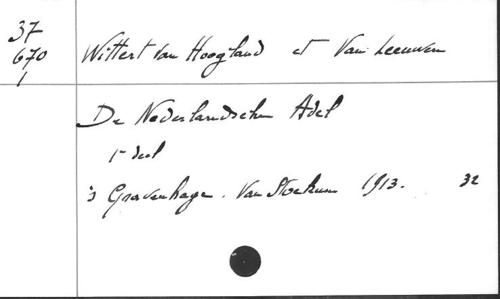 37
670
1
Wittert van Hoogland et Van Leeuwen
De Nederlandsche Adel
1e deel
's Gravenhage. Van Stockum 1913. 32